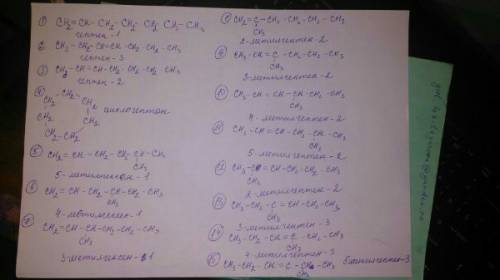 1) CH₂=CH-CH₂-CH₂-CH₂-CH₂-CH₃
гептен-1
2) CH₃-CH₂-CH=CH-CH₂-CH₂-CH₃
гептен-3
3) CH₃-CH=CH-CH₂-CH₂-CH₂-CH₃
гептен-2
4) CH₂-CH₂
CH₂ CH₂
CH₂
CH₂-CH₂
циклогептан
5) CH₂=CH-CH₂-CH₂-CH-CH₃
CH₃
5-метилгексен-1
6) CH₂=CH-CH₂-CH-CH₂-CH₃
CH₃
4-метилгексен-1
7) CH₂=CH-CH-CH₂-CH₂-CH₃
CH₃
3-метилгексен-1
8) CH₂=C-CH₂-CH₂-CH₂-CH₃
CH₃
2-метилгептен-2
9) CH₃-CH=C-CH₂-CH₂-CH₃
CH₃
3-метилгептен-2
10) CH₃-CH=CH-CH-CH₂-CH₃
CH₃
4-метилгептен-2
11) CH₃-CH=CH-CH₂-CH-CH₃
CH₃
5-метилгептен-2
12)
CH₃
-метилгептен-2
13) CH₃-CH₂-C=CH-CH₂-CH₃
CH₃
3-метилгептен-3
14) CH₃-CH₂-CH=C-CH₂-CH₃
CH₃
4-метилгептен-3
15) CH₃-CH₂-CH=C-CH₂-CH₃
CH₃